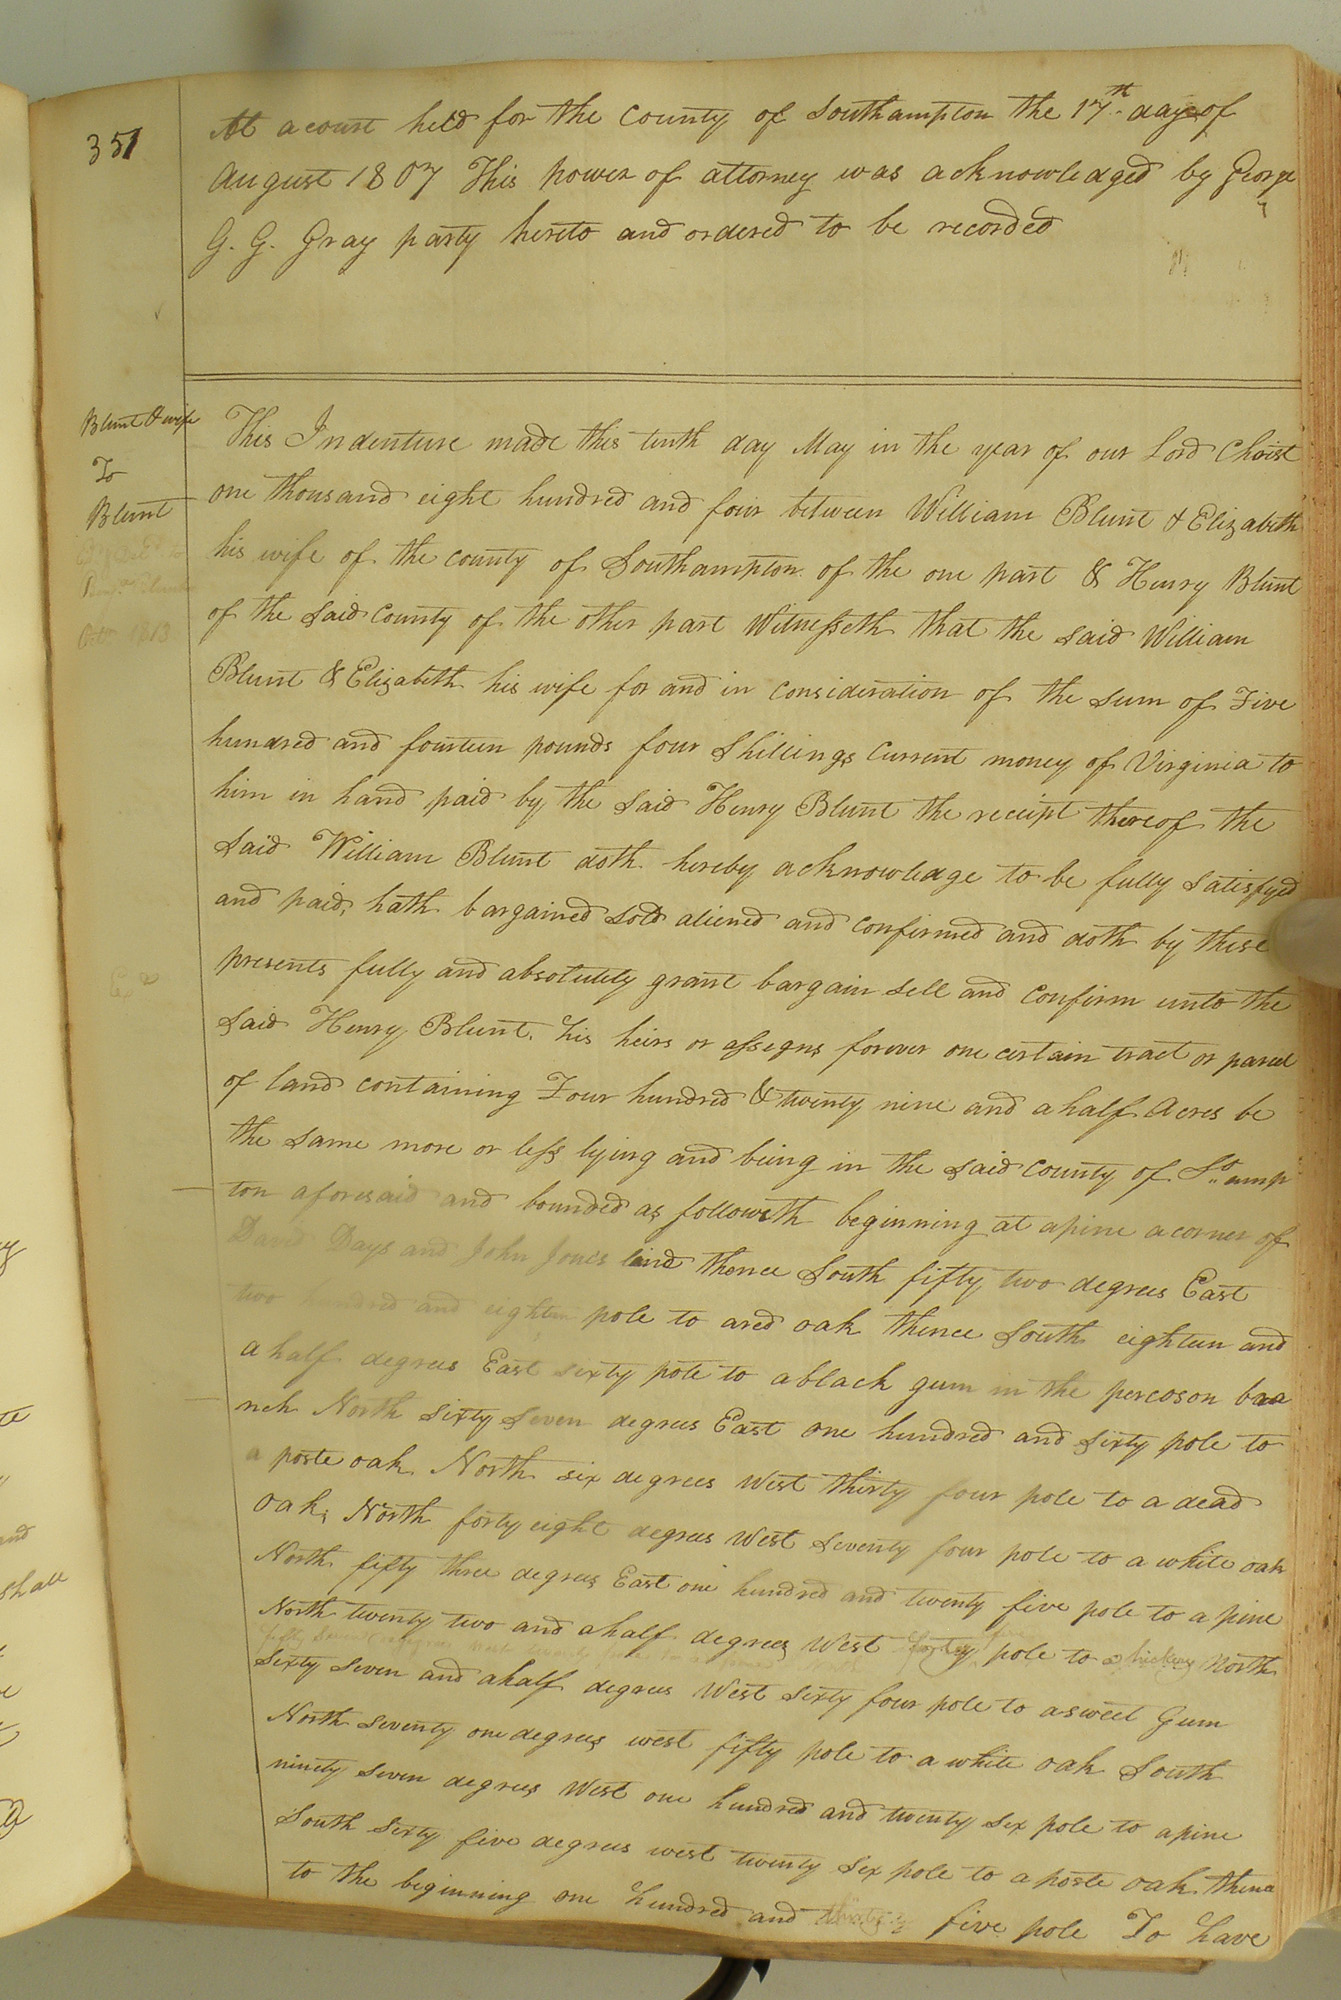 351
At a court held for the County of Southampton the 17th day of
August 1807 This power of attorney was acknowledged by George
G. G. Gray party hereto and ordered to be recorded
Blunt & wife
To
Blunt
Octr 1813
This Indenture made this tenth day May in the year of our Lord Christ
one thousand eight hundred and four between William Blunt & Elizabeth
his wife of the county of Southampton of the one part & Henry Blunt
of the said County of the other part Witnesseth that the said William
Blunt & Elizabeth his wife for and in consideration of the sum of Five
hundred and fourteen pounds four Shillings Current money of Virginia to
him in hand paid by the said Henry Blunt the receipt thereof the
said William Blunt doth hereby acknowledge to be fully satisfyed
and paid, hath bargained sold aliened and confirmed and doth by these
presents fully and absolutely grant bargain sell and confirm unto the
said Henry Blunt, his heirs or assigns forever one certain tract or parcel
of land containing Four hundred & twenty nine and a half Acres be
the same more or less lying and being in the said county of So amp
ton aforesaid and bounded as followeth beginning at a pine a corner of
David Days and John Jones land thence South fifty two degrees East
two hundred and eighteen pole to a red oak thence South eighteen and
a half degrees East sixty pole to a black gum in the percoson bra
nch North sixty seven degrees East one hundred and sixty pole to
a poste oak North six degrees West thirty four pole to a dead
oak, North forty eight degrees West seventy four pole to a white oak
North fifty three degrees East one hundred and twenty five pole to a pine
North twenty two and a half degrees West forty pole to a hickory North
fifty seven degrees
sixty seven and a half degrees West sixty four pole to a sweet Gum
North seventy one degrees west fifty pole to a white oak South
ninety seven degrees West one hundred and twenty six pole to a pine
South sixty five degrees west twenty six pole to a poste oak thence
to the beginning one hundred and five pole To have